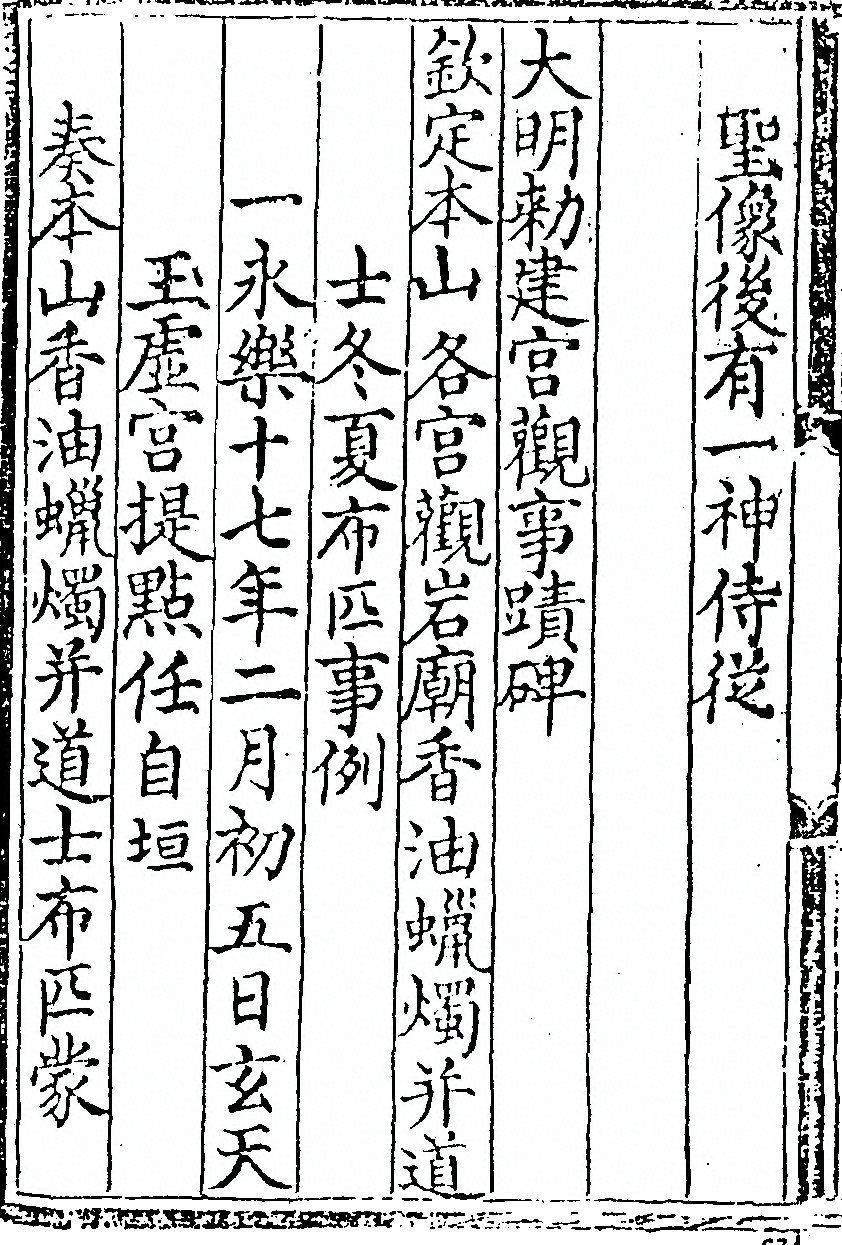 聖像後有一神侍從
大明勑建宫觀事蹟碑
欽定本山各宫觀岩廟香油蠟燭并道
士冬夏布匹事例
一永樂十七年二月初五日玄天
玉虛宫提點任自垣
奏本山香油蠟燭并道士布匹蒙